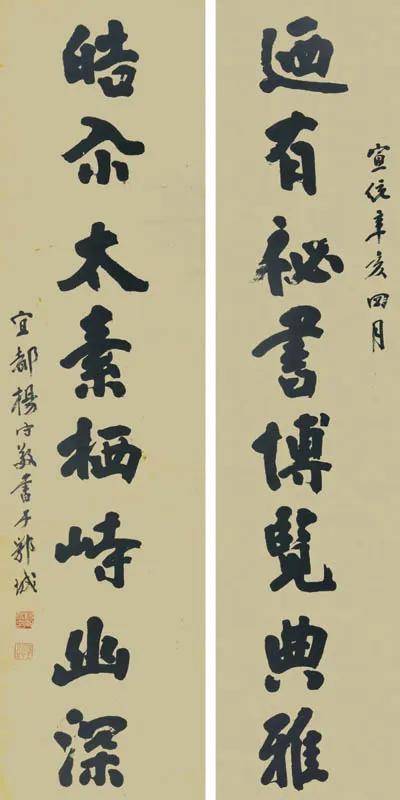 宣統辛亥四月
迺有祕書博覽典雅
皓尒太素栖峙幽深
宜都楊守敬書于鄂城